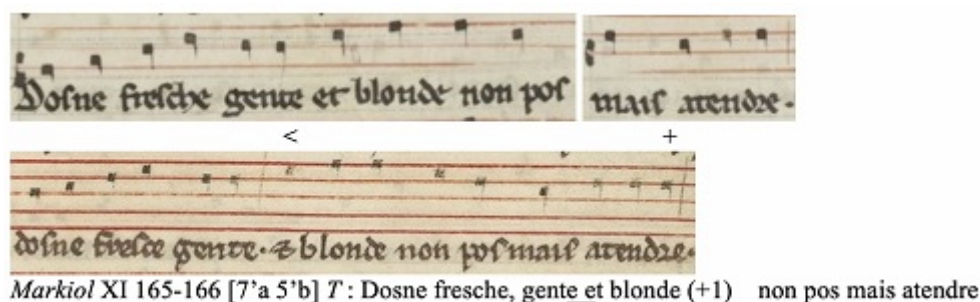 Dosne fresche gente et blonde non pos mais atendre.
< +
dosne fresce gente. & blonde non pos mais atendre.
Markiol XI 165-166 [7’a 5’b] T : Dosne fresche, gente et blonde (+1) non pos mais atendre